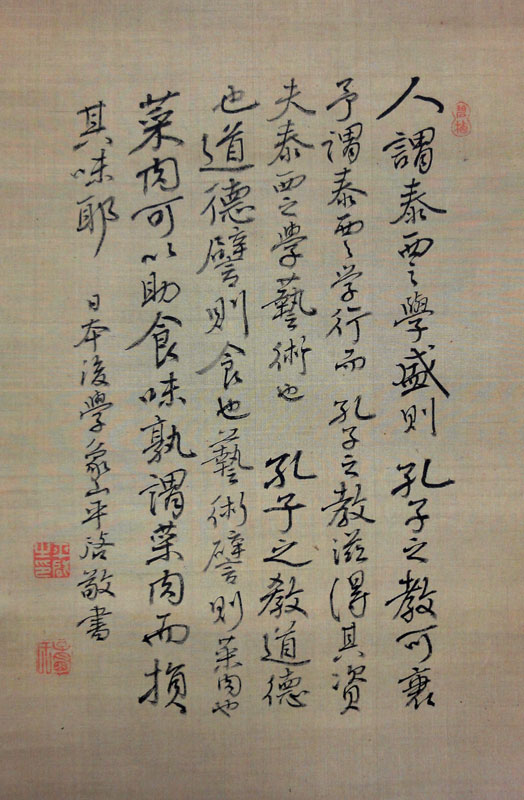 人謂泰西之學盛則孔子之教可衰
予謂泰西之学行而孔子之教滋得其資
夫泰西之學藝術也孔子之教道德
也道德譬則食也藝術譬則菜肉也
菜肉可以助食味孰謂菜肉而損
其味耶
日本後學象山平啓敬書